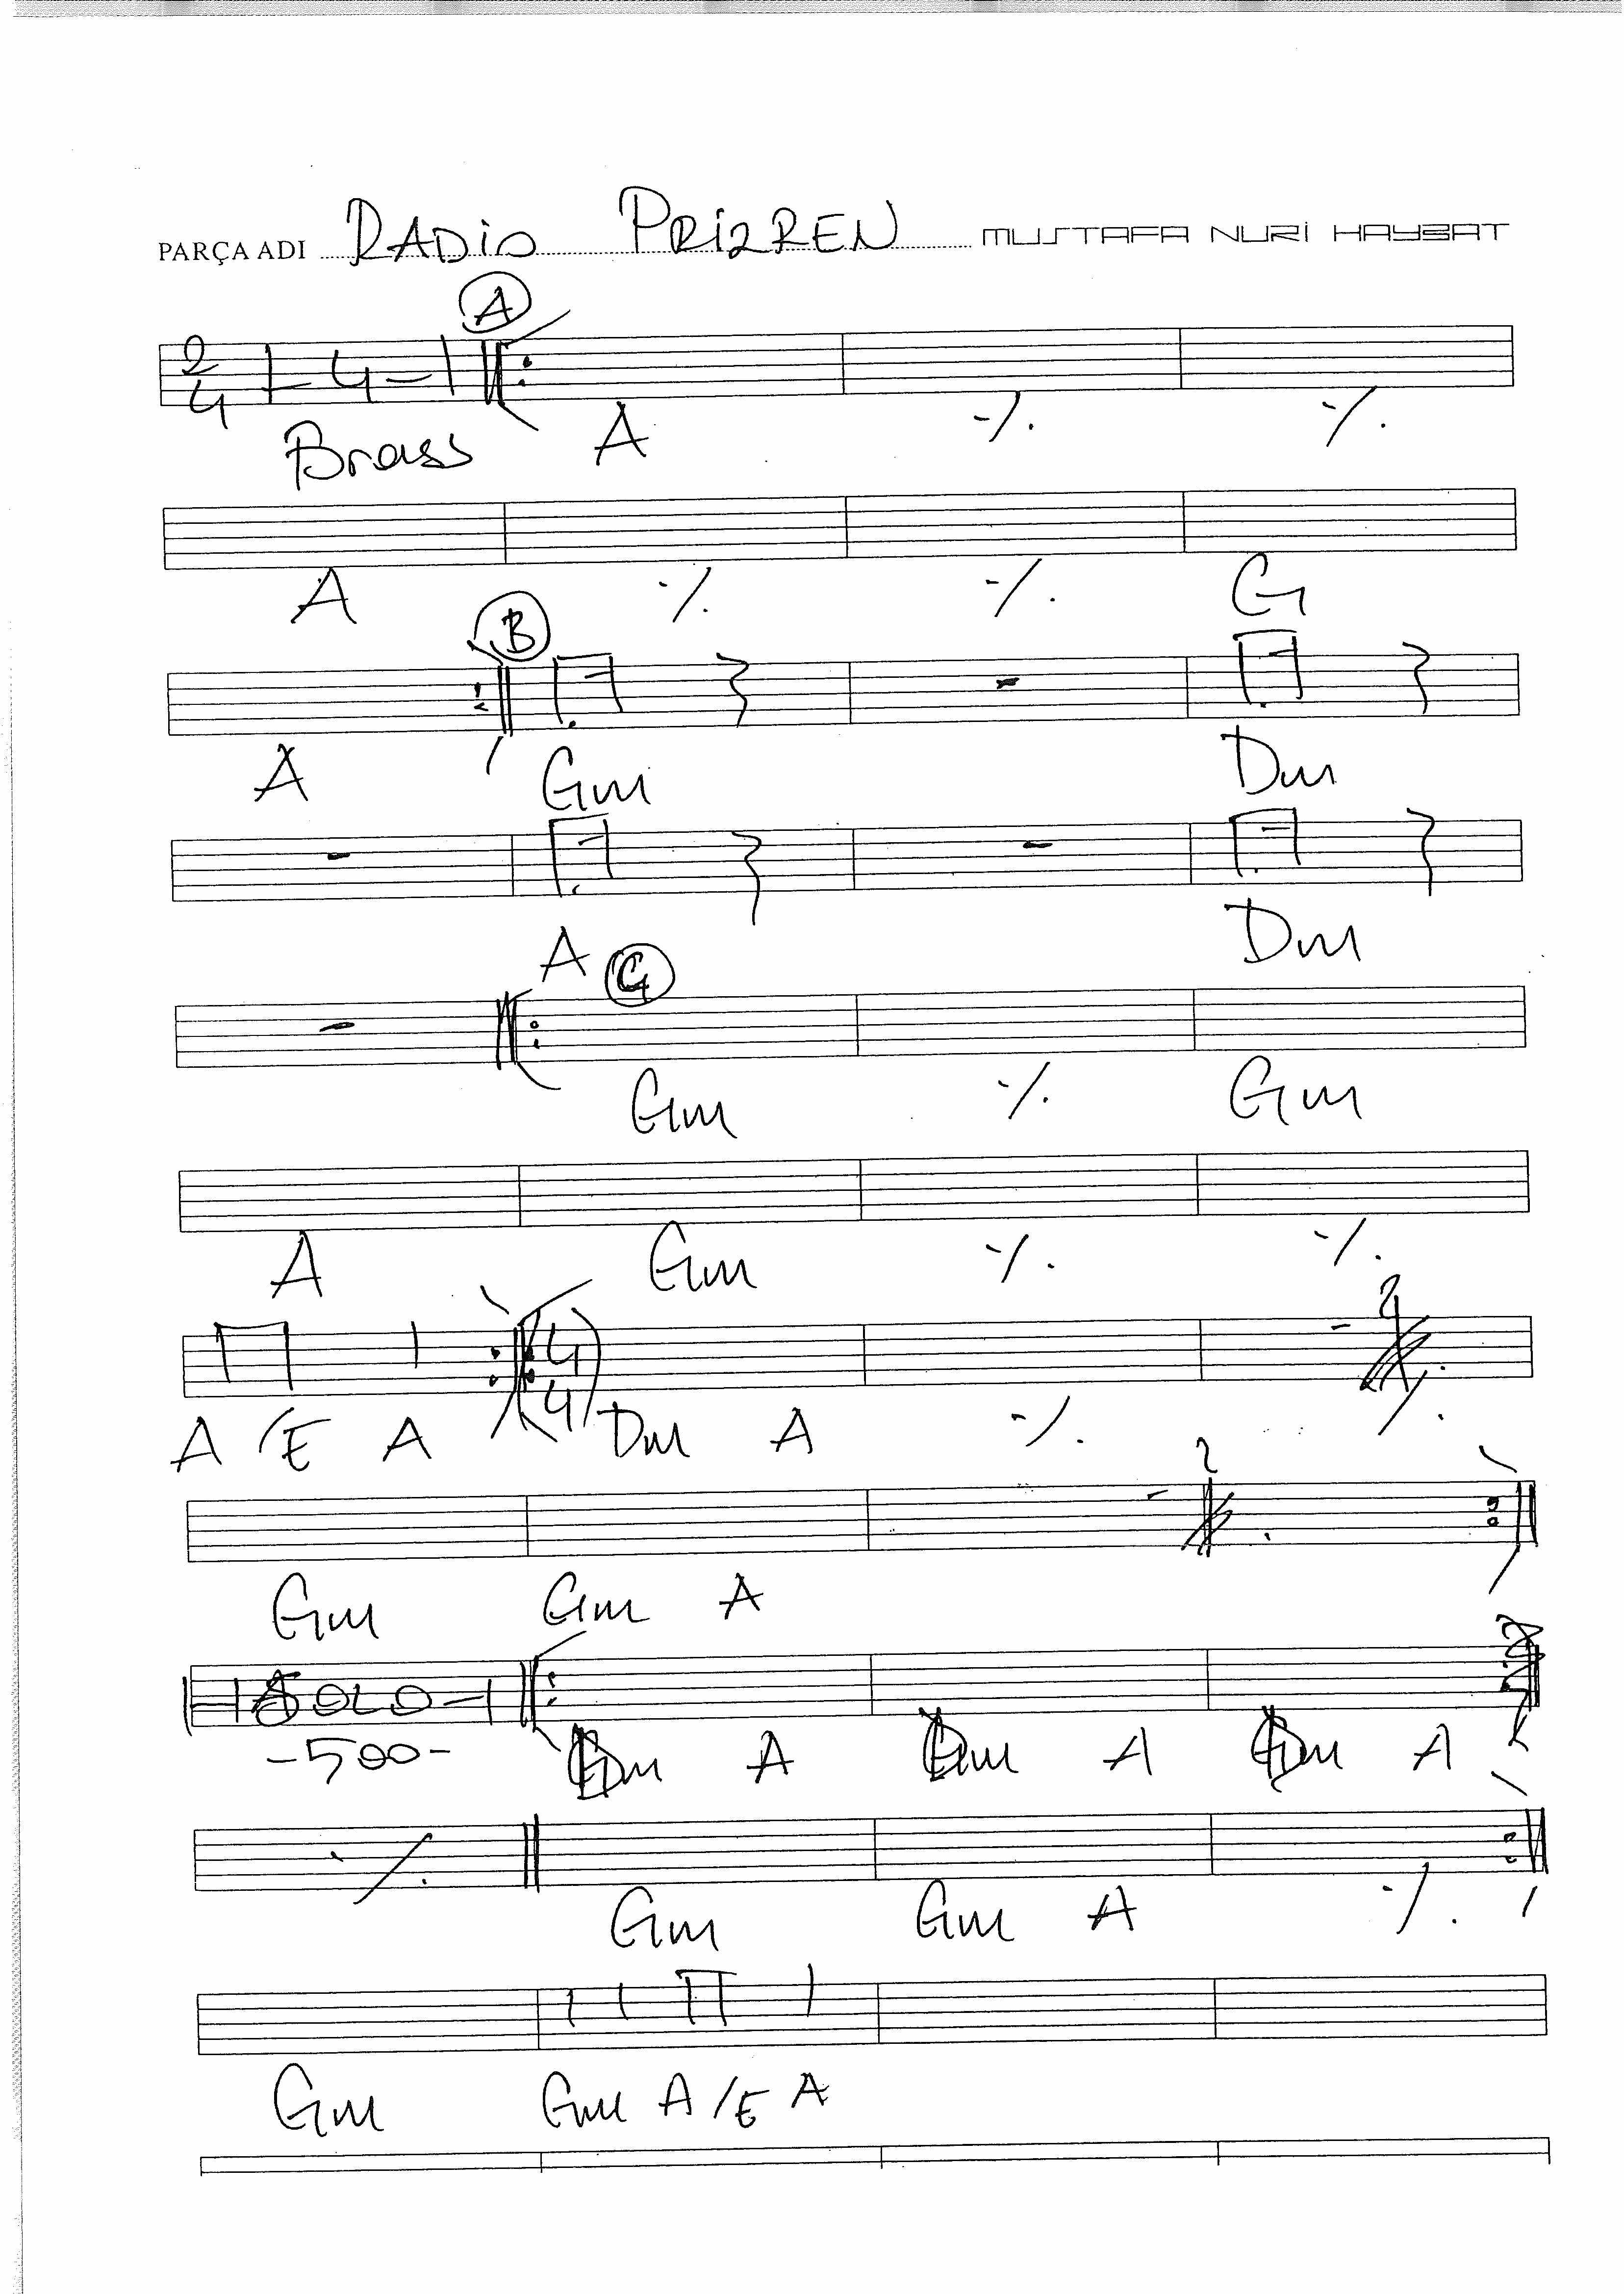 PARÇA ADI RADiO PRiZREN MUSTAFA NURİ HAYBAT
A
2/4 4
Brass A ٪ ٪
A ٪ ٪ G
B
A Gm Dm
A Dm
C
Gm ٪ Gm
A Gm ٪ ٪
4/4 2
A /E A Dm A ٪ ٪
2
Gm Gm A
SOLO
-500- Dm A Gm A Dm A
٪
Gm Gm A ٪
Gm Gm A /E A